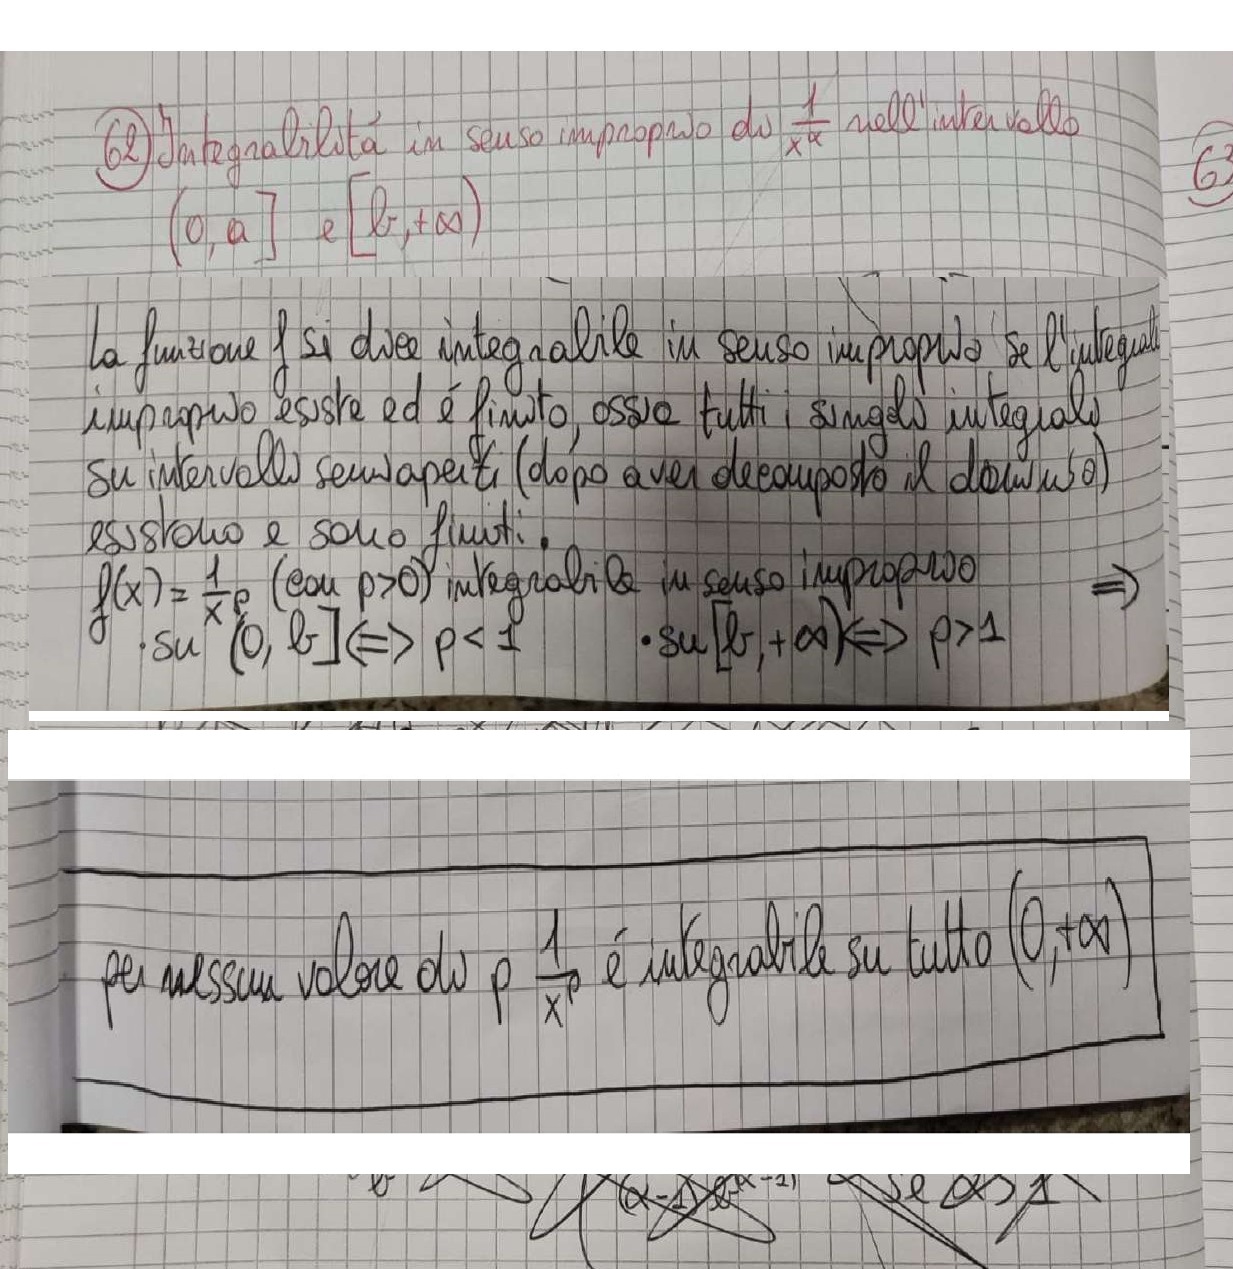 62) Integrabilitá in senso improprio di 1/x^α nell'intervallo
(0, a] e [b, +∞)
63
La funzione f si dice integrabile in senso improprio se l'integrale
improprio esiste ed é finito, ossia tutti i singoli integrali
su intervalli semiaperti (dopo aver decomposto il dominio)
esistono e sono finiti.
f(x) = 1/x^p (con p>0) integrabile in senso improprio ⇒
• su (0, b] ⇔ p < 1 • su [b, +∞) ⇔ p > 1
per nessun valore di p 1/x^p é integrabile su tutto (0, +∞)
se α > 1